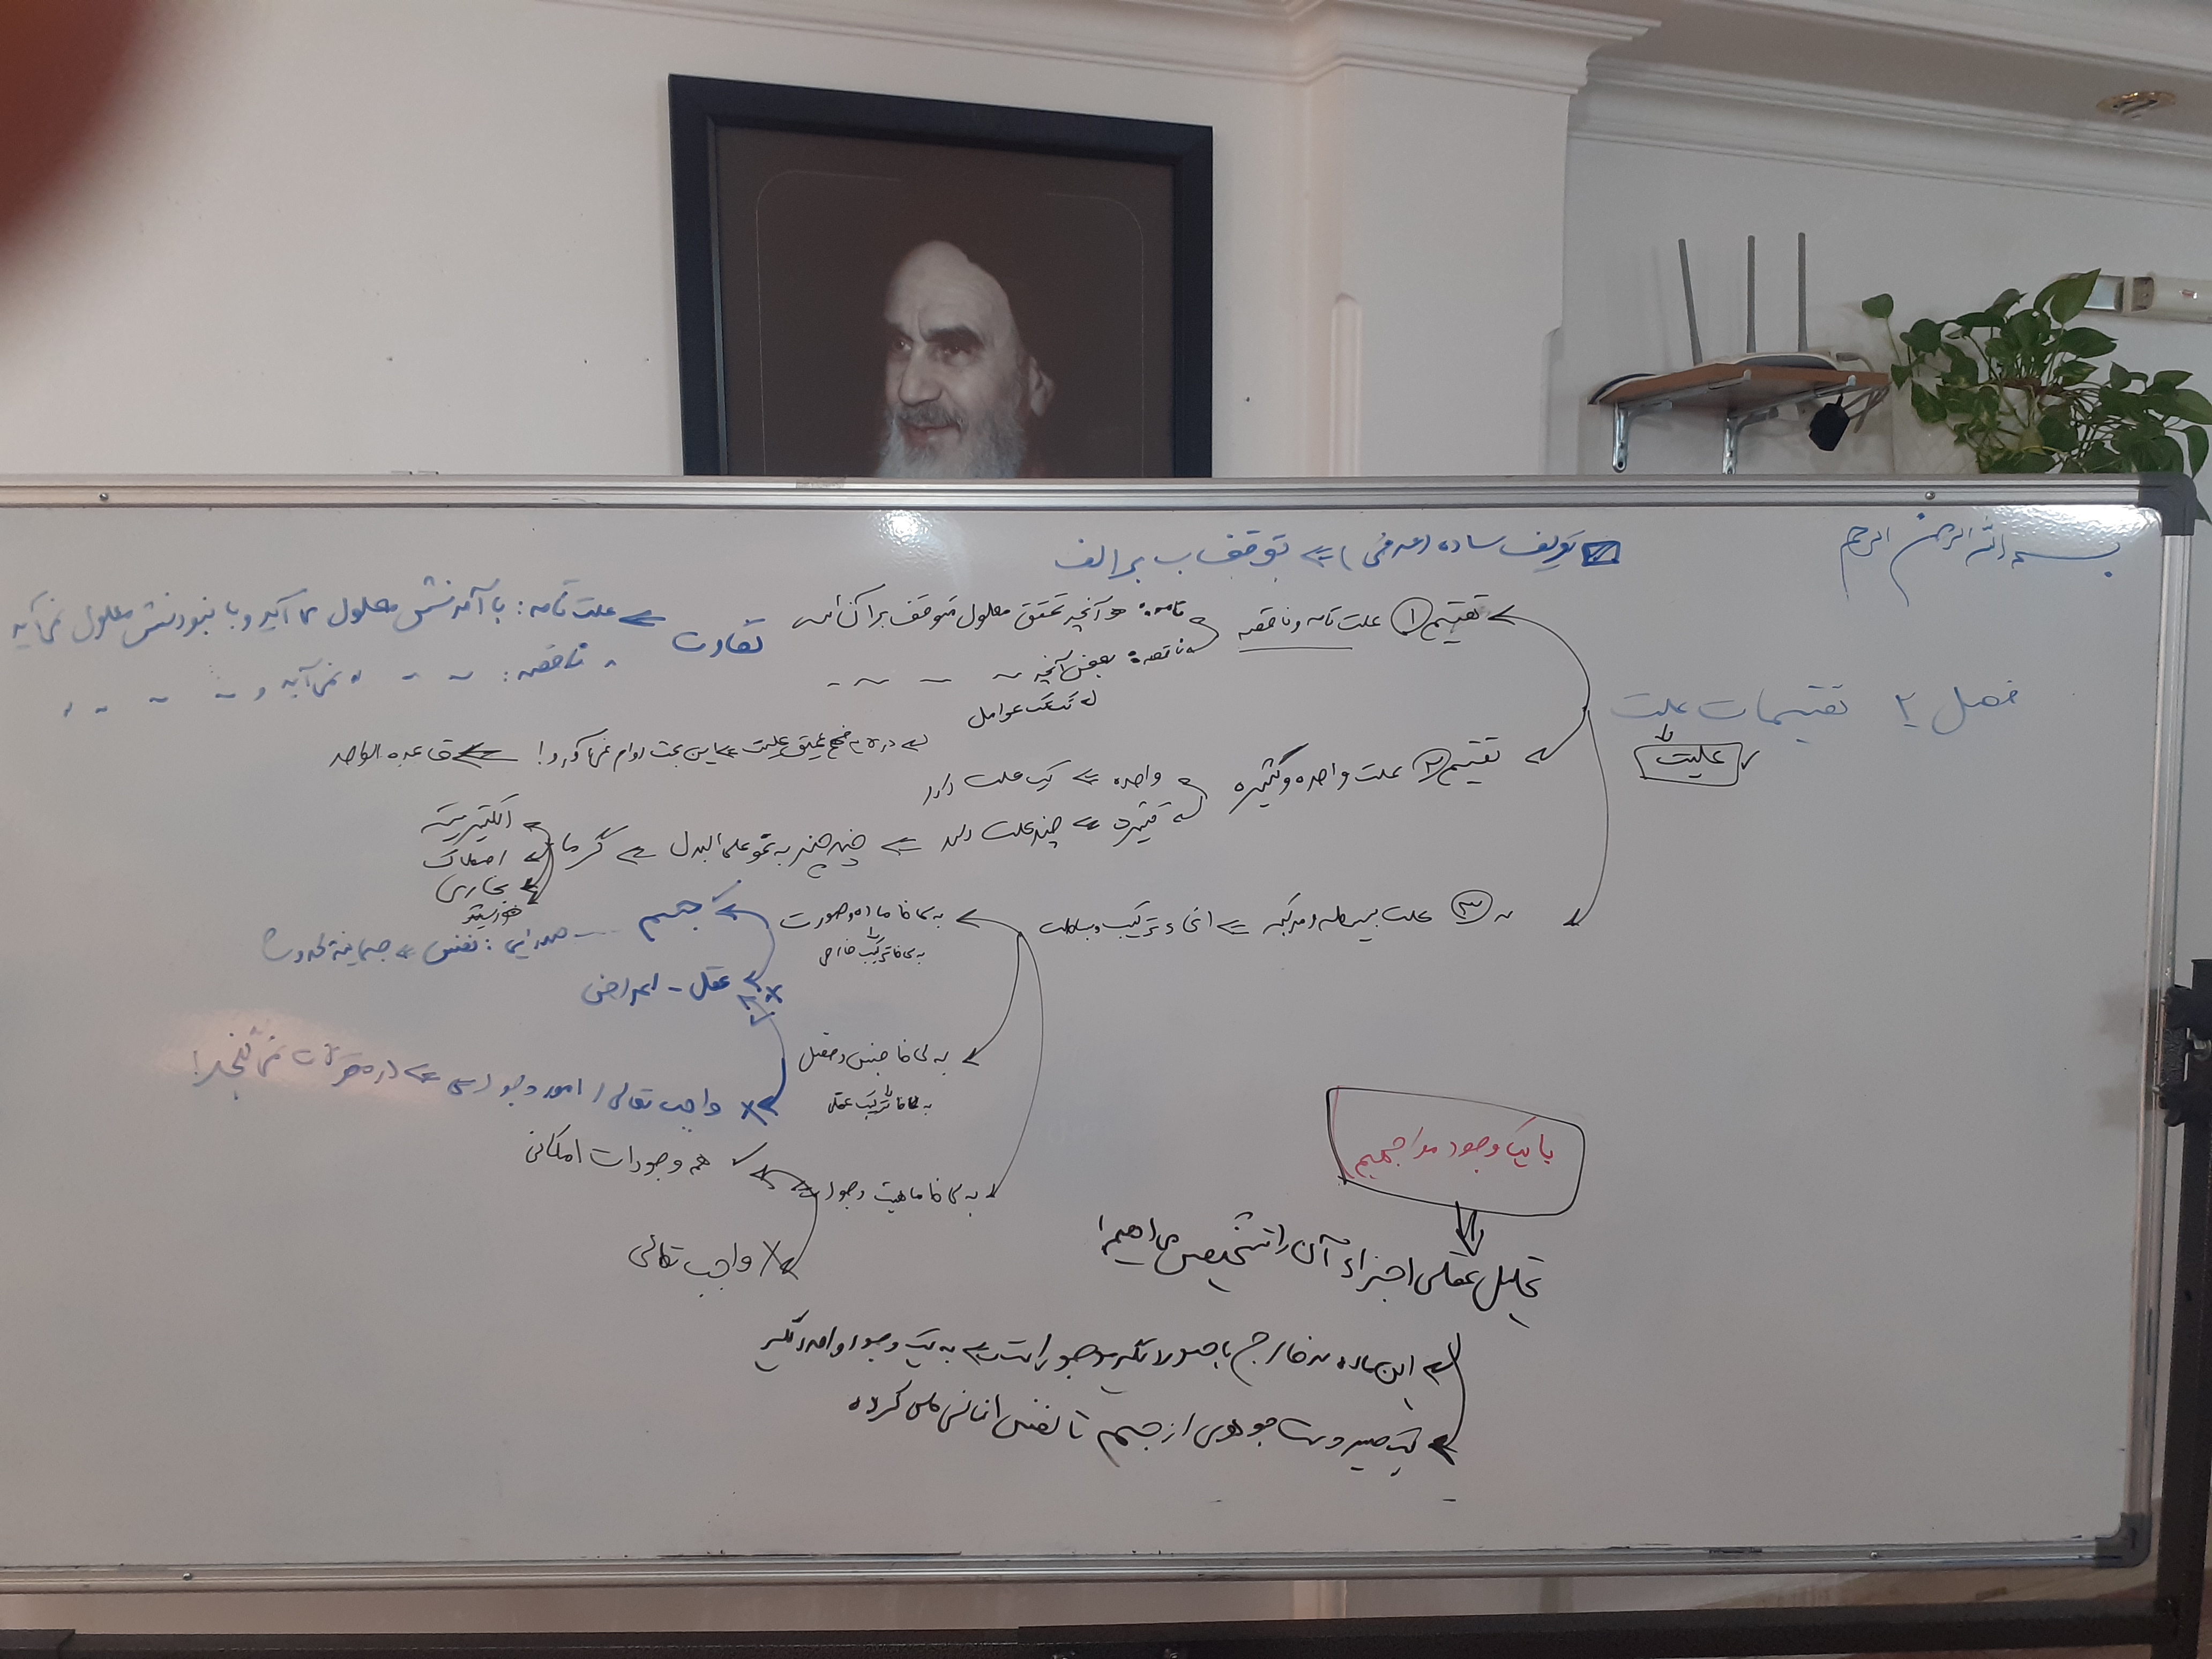 بسم الله الرحمن الرحیم
تعریف ساده (معرفی) ⇐ توقف ب بر الف
فصل ۲ تقسیمات علت
علیت
تقسیم ① علت تامه و ناقصه
تامه: هر آنچه تحقق معلول متوقف بر آن است
ناقصه: بعض آنچه ~ ~ ~ ~
تفاوت ⇐ علت تامه: با آمدنش معلول می آید و با نبودنش معلول نمی آید
ناقصه: ~ ~ نمی آید و ~ ~ ~
کثرت عوامل
تقسیم ② علت واحده و کثیره
در نگاه عمیق علیت ⇐ این بحث دوام نمی آورد! ⇐ قاعده الواحد
واحده ⇐ یک علت دارد
کثیره ⇐ چند علت دارد ⇐ چند چیز به نحو علی البدل ⇐ گرما
الکتریسیته
اصطکاک
بخاری
خورشید
~ ③ علت بسیطه و مرکبه ⇐ انحاء ترکیب و بساطت
به لحاظ ماده و صورت
به لحاظ ترکیب خارجی
جسم ---- صدرایی: نفس ⇐ جسمانیة الحدوث
عقل - اعراض
به لحاظ جنس و فصل
به لحاظ ترکیب عقلی
واجب تعالی / امور وجودی ⇐ در مقولات نمی گنجد!
به لحاظ ماهیت وجود
همه وجودات امکانی
واجب تعالی
با یک وجود مواجهیم
تحلیل عقلی اجزاء آن را تشخیص می دهیم!
این ماده در خارج با صورتگری موجود است ⇐ به یک وجود واحد دیگر
یک صیرورت جوهری از جسم تا نفس انسانی طی کرده